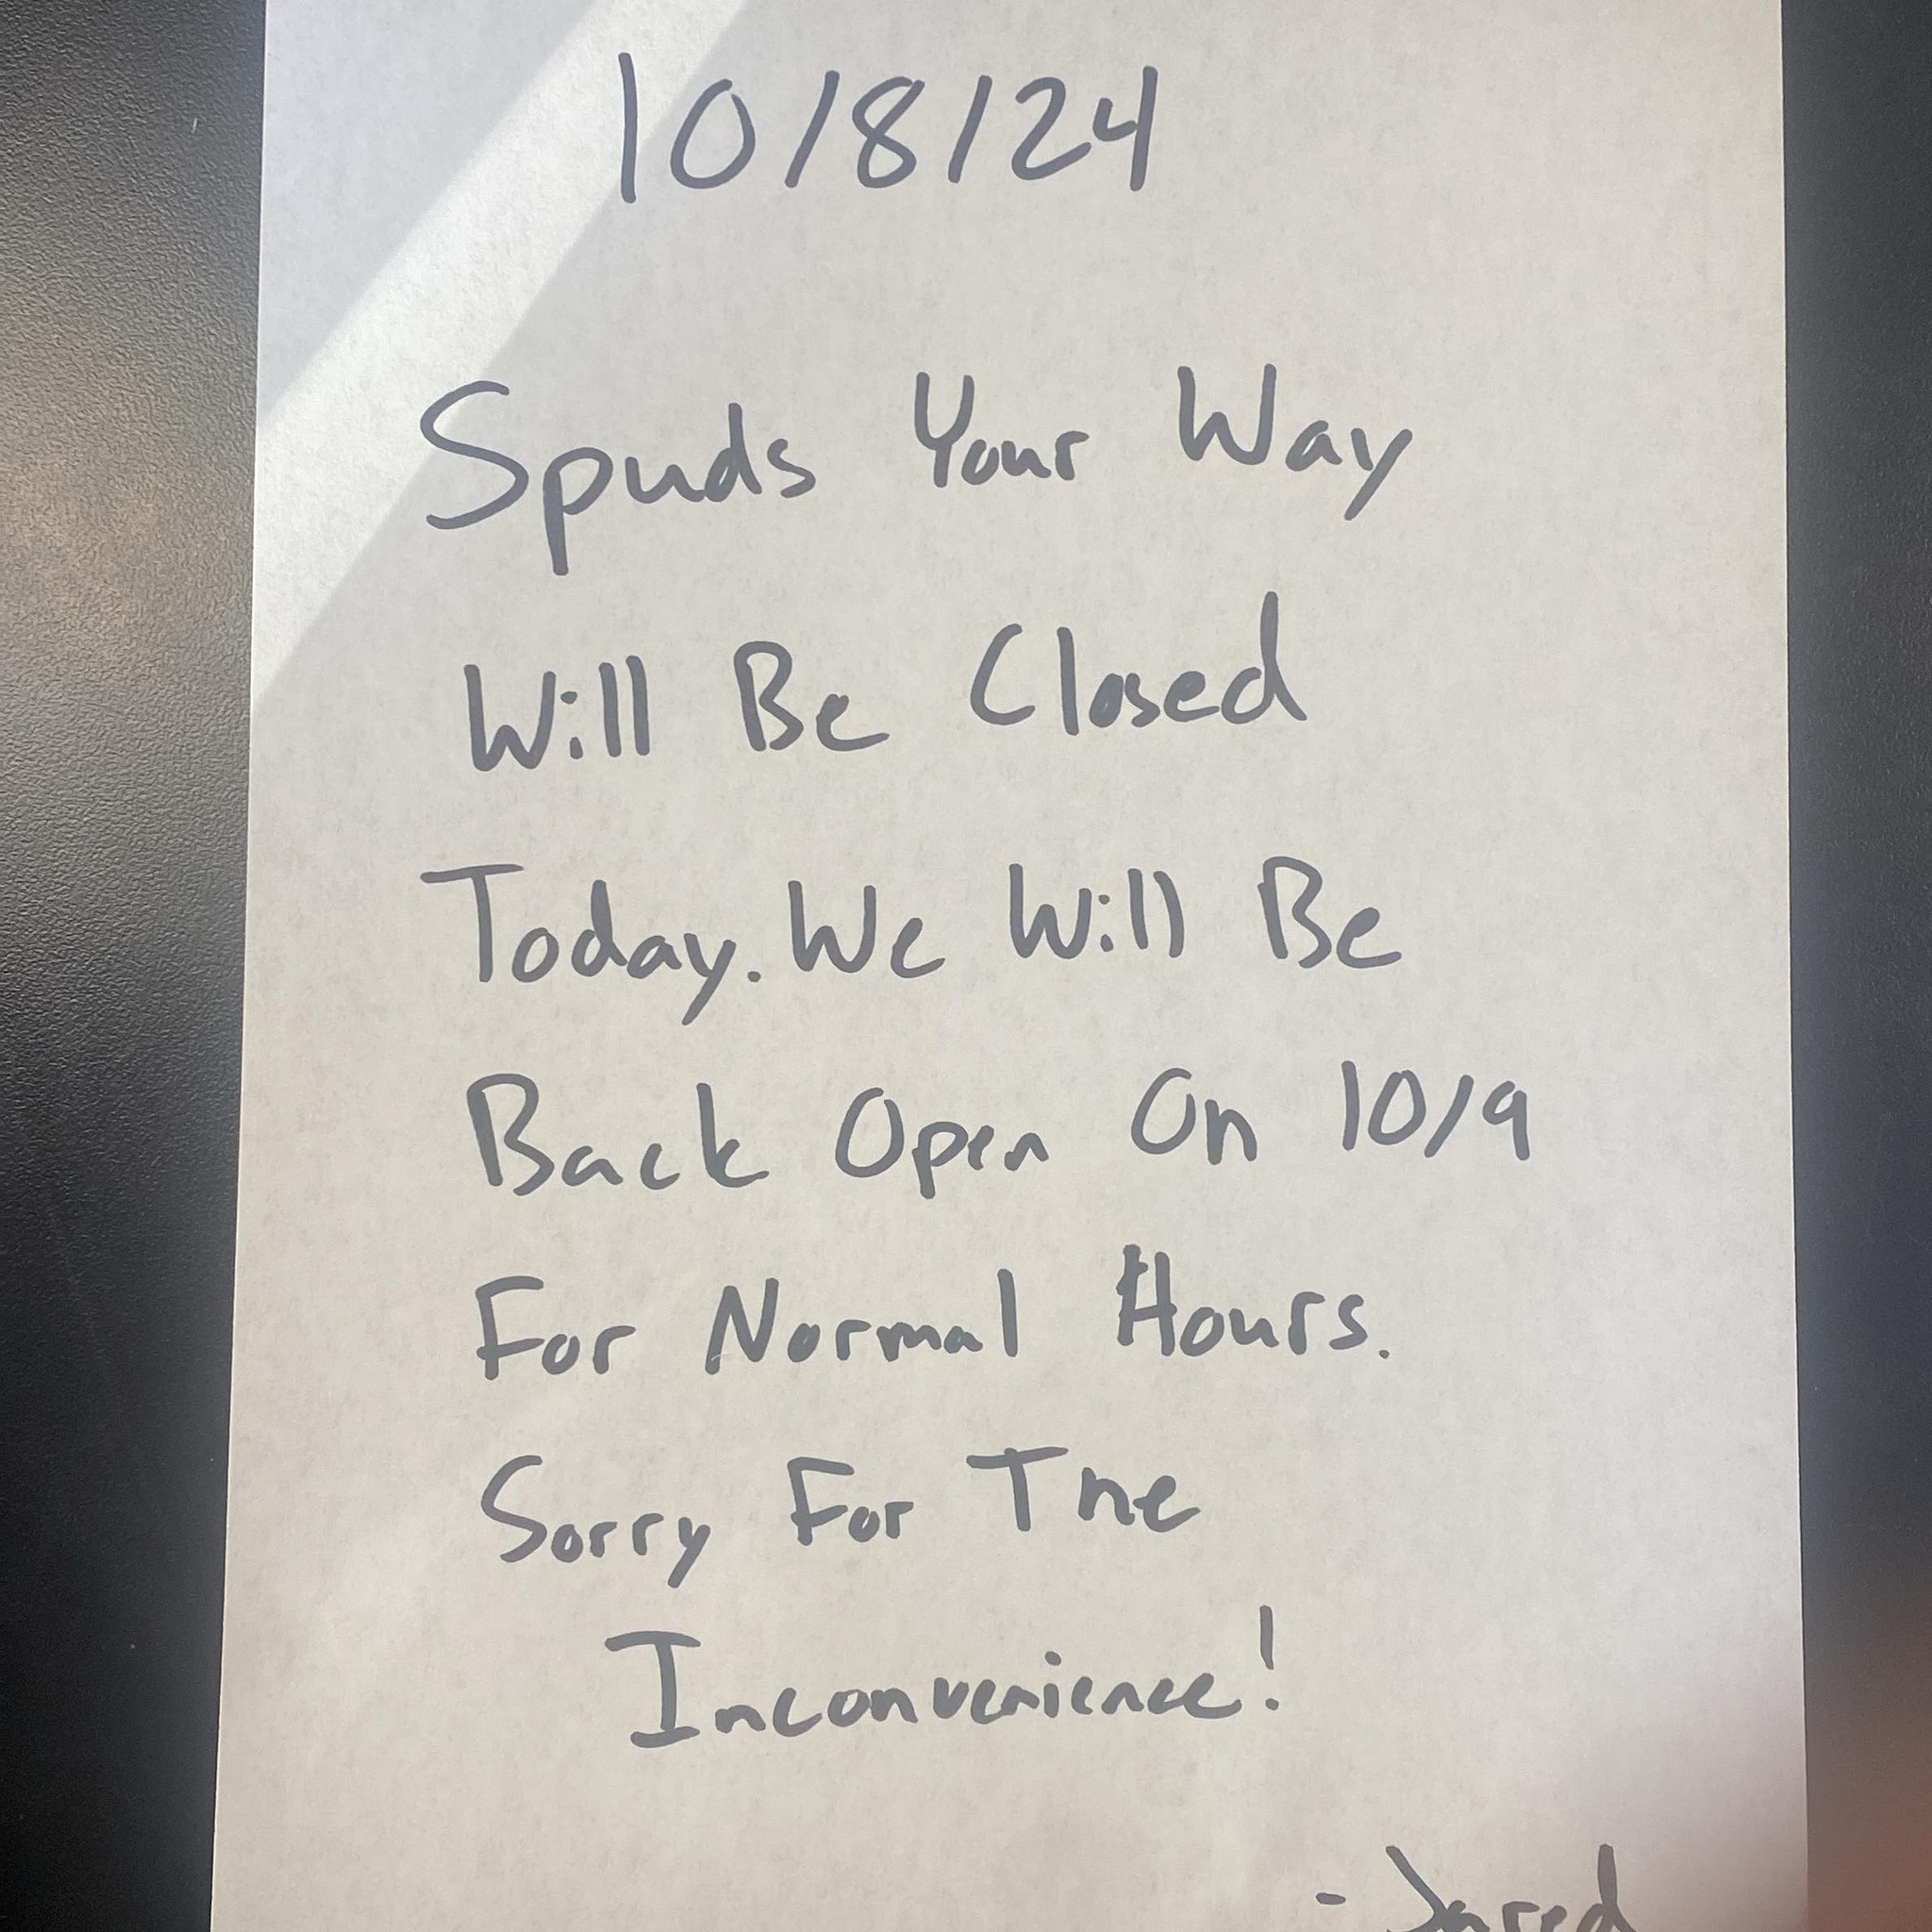 10/8/24
Spuds Your Way
Will Be Closed
Today. We Will Be
Back Open On 10/9
For Normal Hours.
Sorry For The
Inconvenience!
- Jared